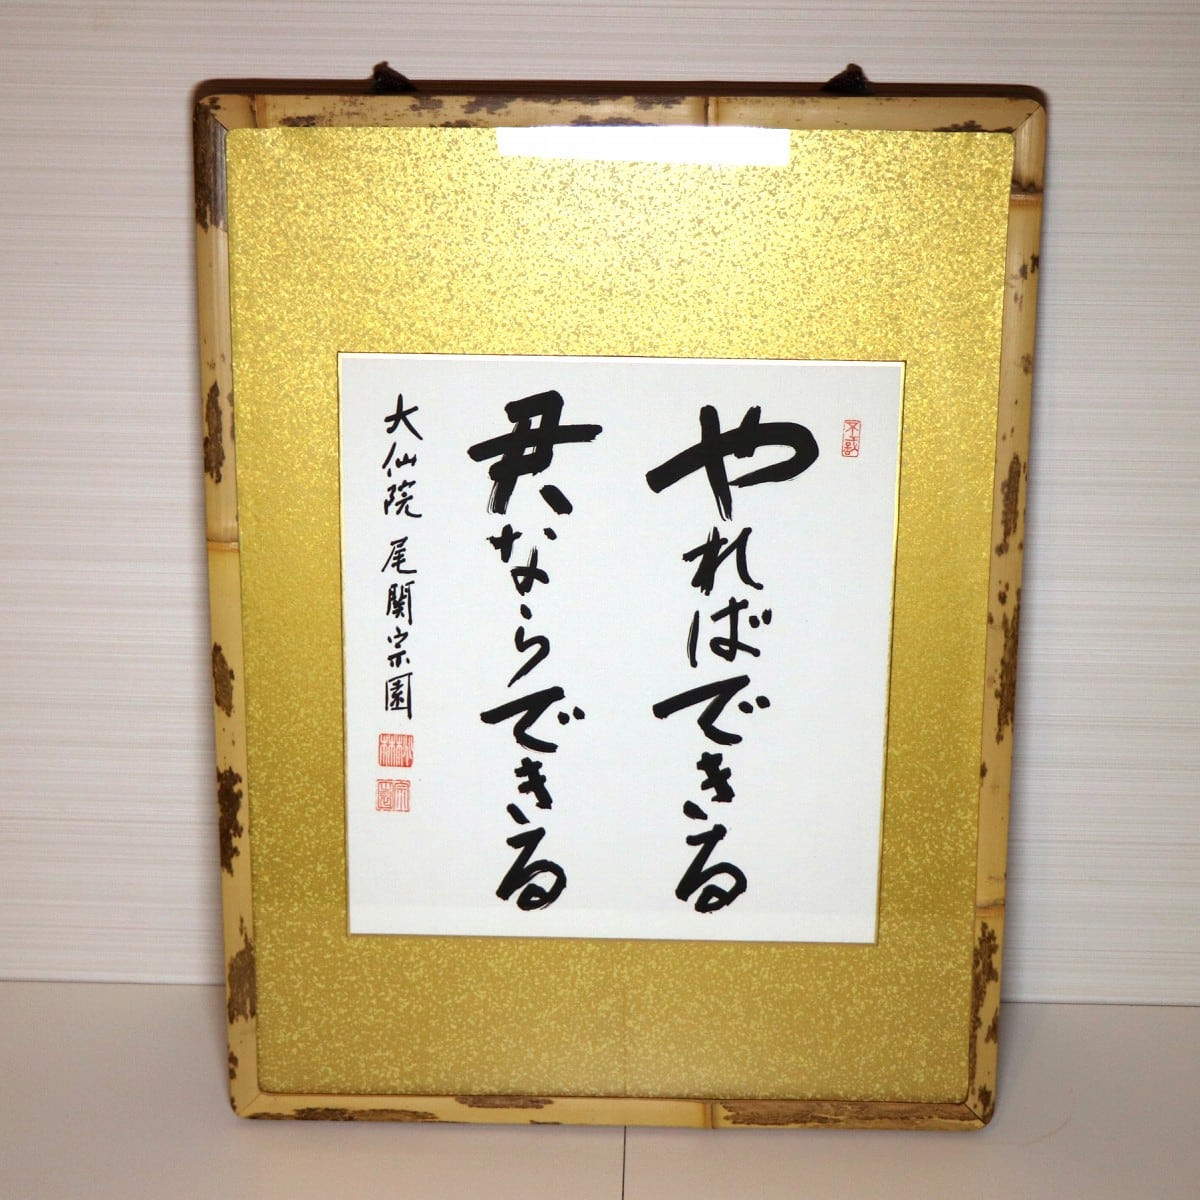 やればできる
君ならできる
大仙院 尾関宗園